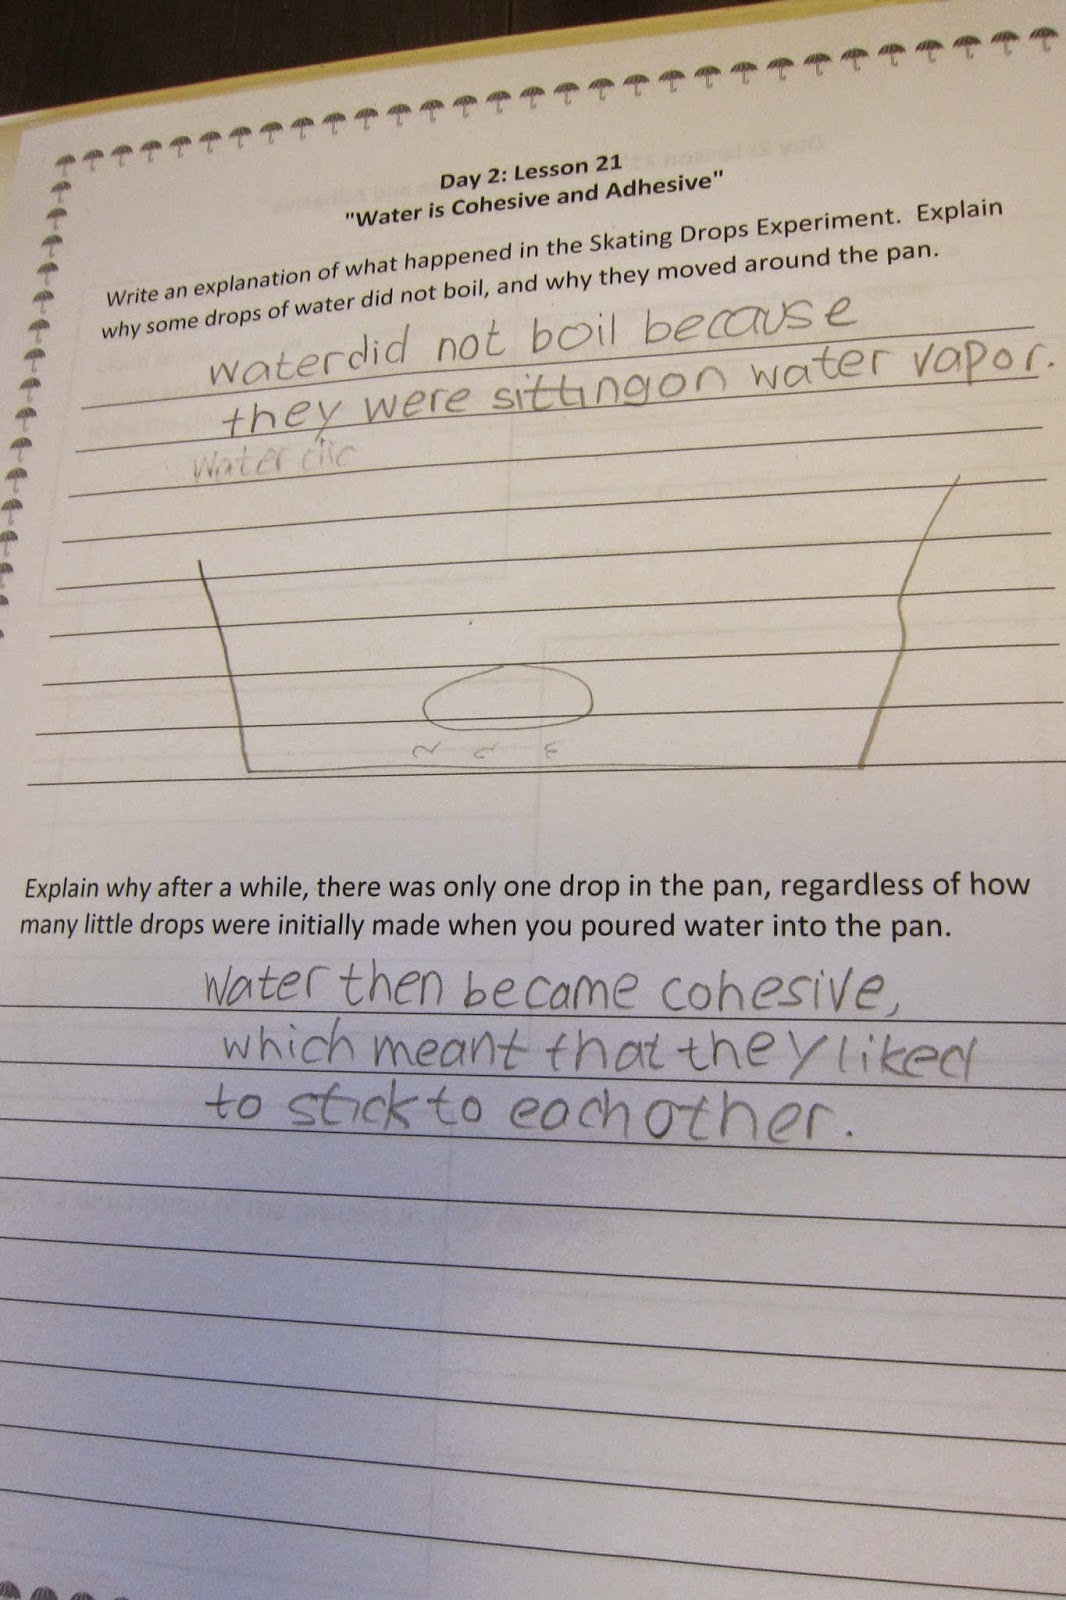 Day 2: Lesson 21
"Water is Cohesive and Adhesive"
Write an explanation of what happened in the Skating Drops Experiment. Explain
why some drops of water did not boil, and why they moved around the pan.
Water did not boil because
they were sitting on water vapor.
Water
Explain why after a while, there was only one drop in the pan, regardless of how
many little drops were initially made when you poured water into the pan.
Water then became cohesive,
which meant that they liked
to stick to each other.